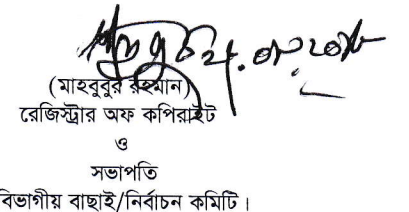 (মাহবুবুর রহমান)
রেজিস্ট্রার অফ কপিরাইট
ও
সভাপতি
বিভাগীয় বাছাই/নির্বাচন কমিটি।